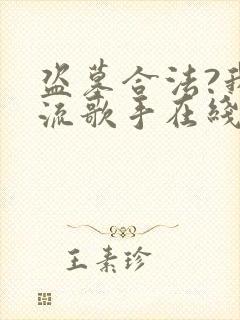 盗墓合法?我
流歌手在綫
王素珍